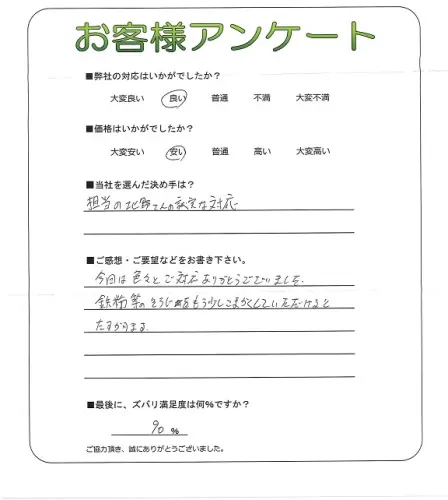 お客様アンケート
■弊社の対応はいかがでしたか？
大変良い 良い 普通 不満 大変不満
■価格はいかがでしたか？
大変安い 安い 普通 高い 大変高い
■当社を選んだ決め手は？
担当の北野さんの誠実な対応
■ご感想・ご要望などをお書き下さい。
今回は色々とご対応ありがとうございました。
鉄粉等のそうじをもう少しこまかくしていただけると
たすかります。
■最後に、ズバリ満足度は何%ですか？
90 %
ご協力頂き、誠にありがとうございました。